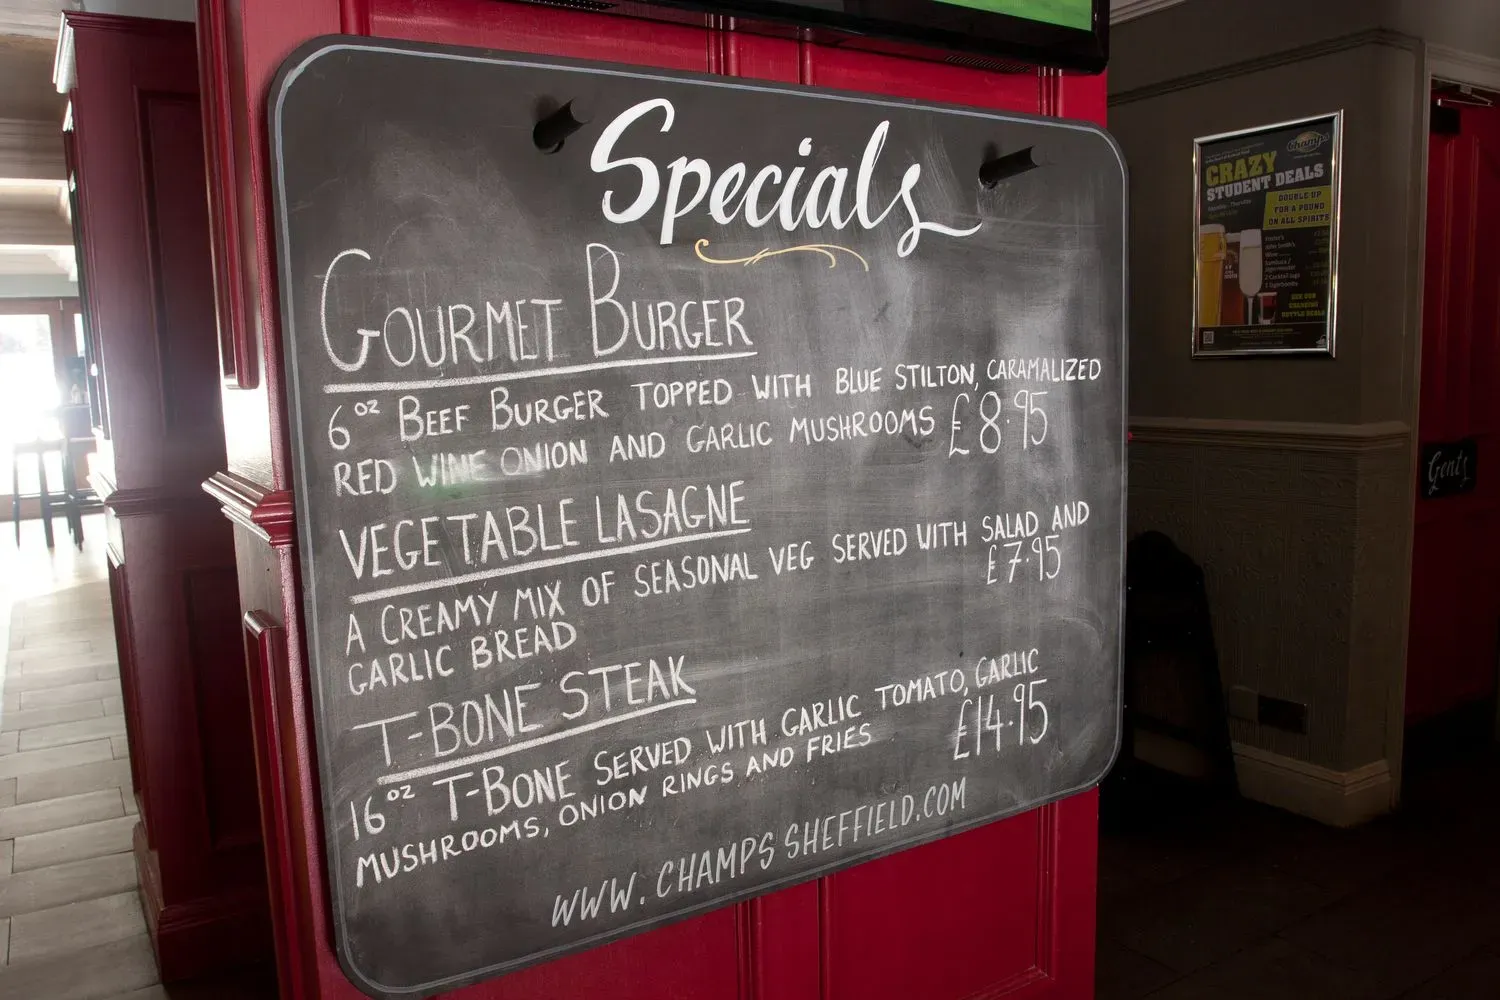 Specials
GOURMET BURGER
6oz BEEF BURGER TOPPED WITH BLUE STILTON, CARAMALIZED
RED WINE ONION AND GARLIC MUSHROOMS £8.95
VEGETABLE LASAGNE
A CREAMY MIX OF SEASONAL VEG SERVED WITH SALAD AND
GARLIC BREAD £7.95
T-BONE STEAK
16oz T-BONE SERVED WITH GARLIC TOMATO, GARLIC
MUSHROOMS, ONION RINGS AND FRIES £14.95
WWW.CHAMPSSHEFFIELD.COM
Champs
CRAZY
STUDENT DEALS
DOUBLE UP
FOR A POUND
ON ALL SPIRITS
Foster's
John Smith's
Wine
Sambuca /
Jagermeister
2 Cocktail Jugs
3 Jagerbombs
Gents